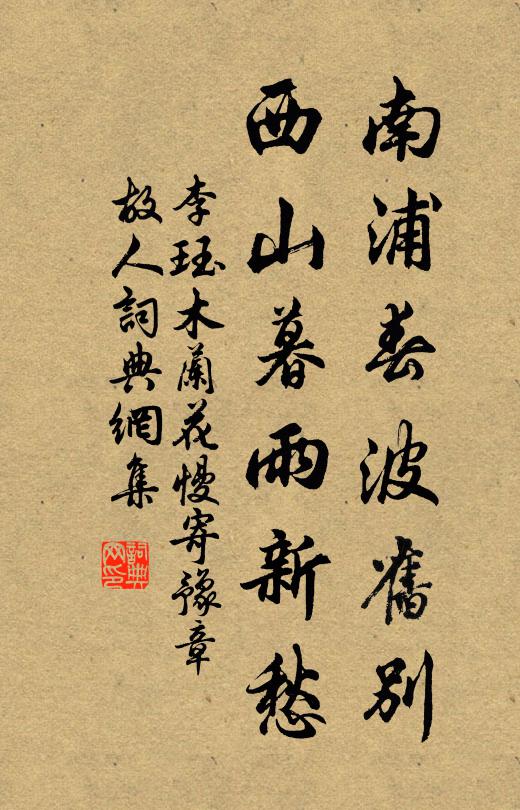 南浦春波舊別
西山暮雨新愁
李珏木蘭花慢寄豫章
故人詞典網集
詞典網印